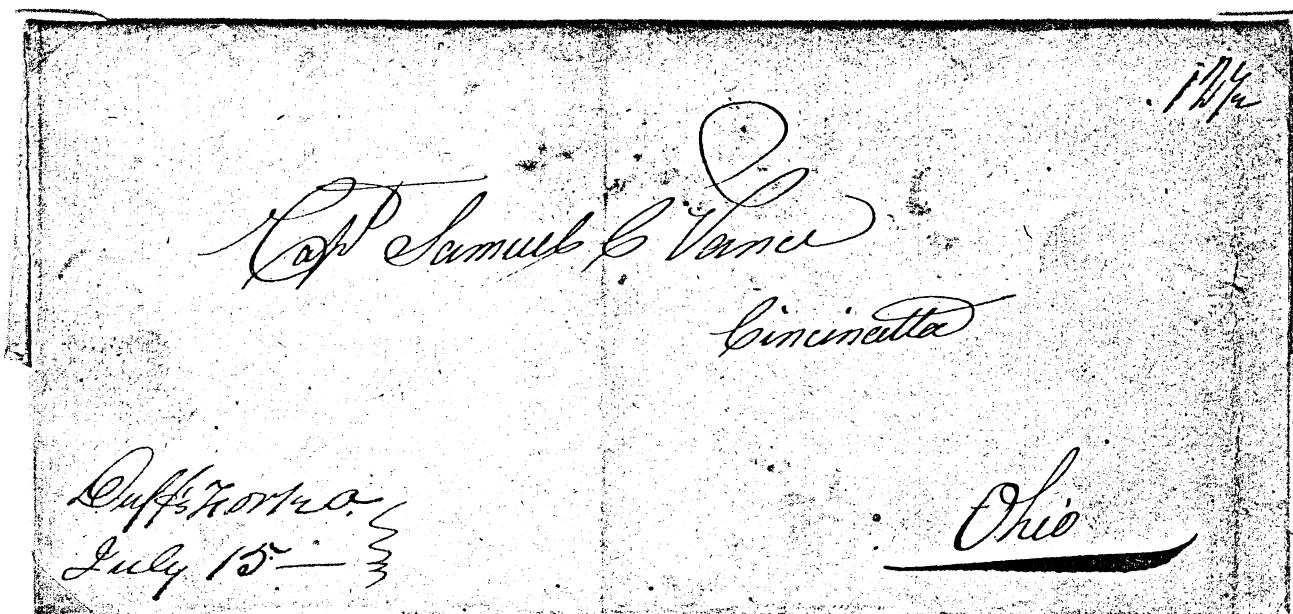 12½
Capt Samuel C Vance
Cincinatta
Duff's Fork O.
July 15 —
Ohio